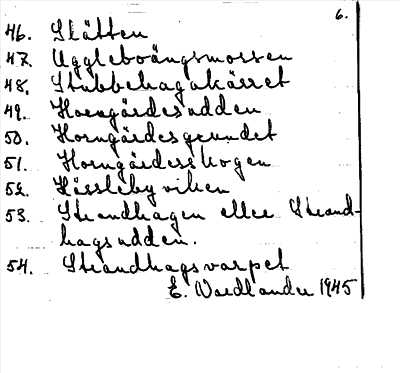 6.
46. Slätten
47. Uggleboängsmossen
48. Stubbehagakärret
49. Horngärdesudden
50. Horngärdesgrundet
51. Horngärdesskogen
52. Hässlebyviken
53. Strandhagen eller Strand-
hagsudden.
54. Strandhagsvarpet
E. Nordlander 1945